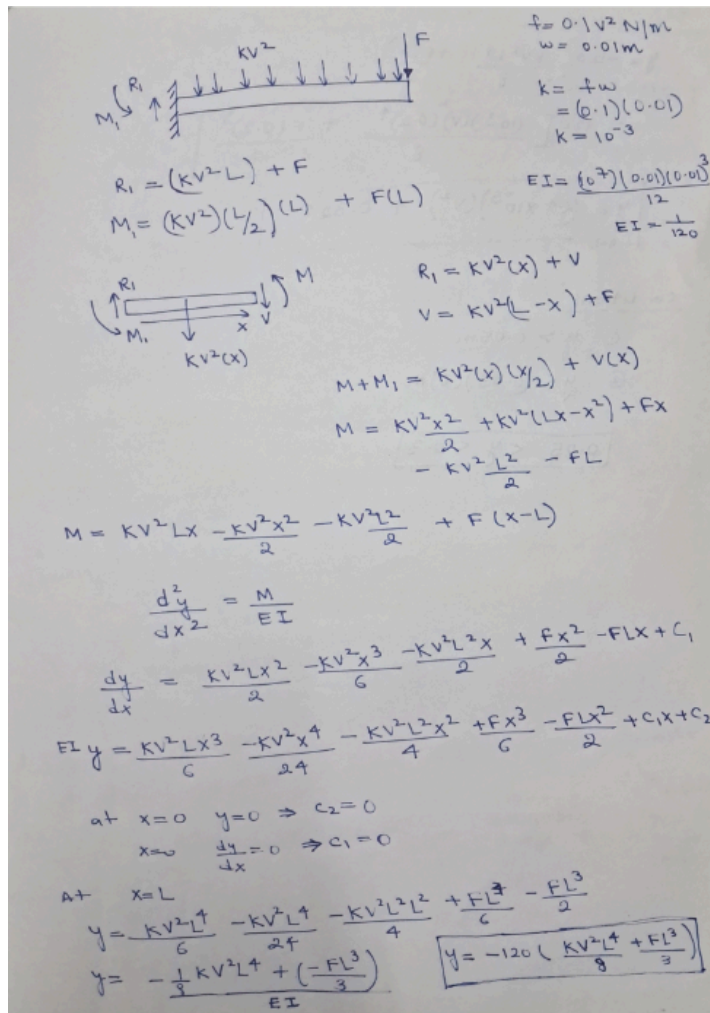 f = 0.1 v² N/m
w = 0.01m
KV²
F
R₁
M₁
k = fw
= (0.1)(0.01)
K = 10⁻³
R₁ = (KV²L) + F
M₁ = (KV²)(L/2)(L) + F(L)
EI = (10⁷)(0.01)(0.01)³/12
EI = 1/120
R₁
M
M₁
x
V
KV²(x)
R₁ = KV²(x) + V
V = KV²(L-x) + F
M+M₁ = KV²(x)(x/2) + V(x)
M = KV²x²/2 + KV²(Lx-x²) + Fx
- KV²L²/2 - FL
M = KV²Lx - KV²x²/2 - KV²L²/2 + F(x-L)
d²y/dx² = M/EI
dy/dx = KV²Lx²/2 - KV²x³/6 - KV²L²x/2 + Fx²/2 - FLx + C₁
EI y = KV²Lx³/6 - KV²x⁴/24 - KV²L²x²/4 + Fx³/6 - FLx²/2 + C₁x + C₂
at x=0 y=0 ⇒ C₂=0
x=0 dy/dx = 0 ⇒ C₁=0
At x=L
y = KV²L⁴/6 - KV²L⁴/24 - KV²L²L²/4 + FL³/6 - FL³/2
y = - 1/8 KV²L⁴ + (-FL³/3) / EI
y = -120 ( KV²L⁴/8 + FL³/3 )